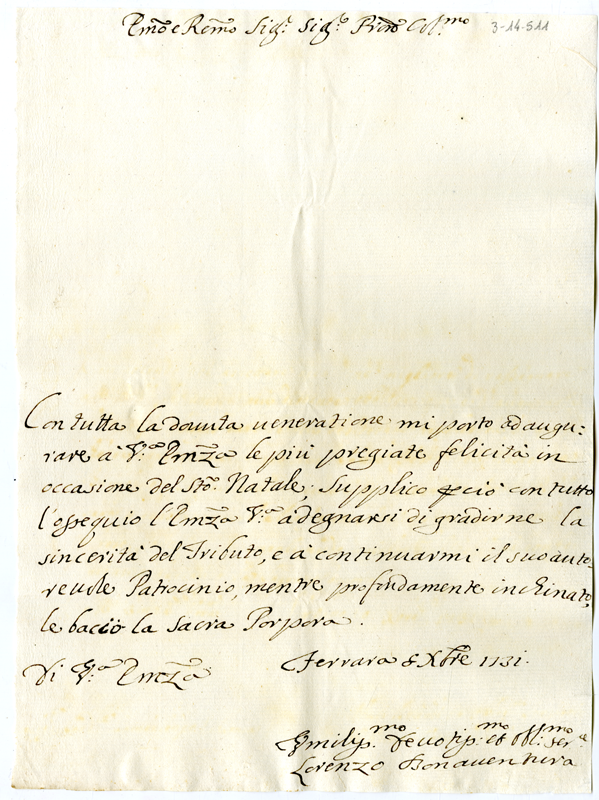 Emo e Remo Sigr. Sigr. Prone Colmo 3-14-511
Con tutta la douuta ueneratione mi porto ad augu:
rare à V:a Emza le più pregiate felicità in
occasione del Sto. Natale; Supplico perciò con tutto
l'ossequio l'Emza V:a a degnarsi di gradirne la
sincerità del Tributo, e à continuarmi il suo auto-
reuole Patrocinio, mentre profondamente inchinato,
le baccio la Sacra Porpora.
Di V:a Emza Ferrara 8 Xbre 1731.
Humilissmo Deuotissmo et Obblmo Serre
Lorenzo Bonaventura